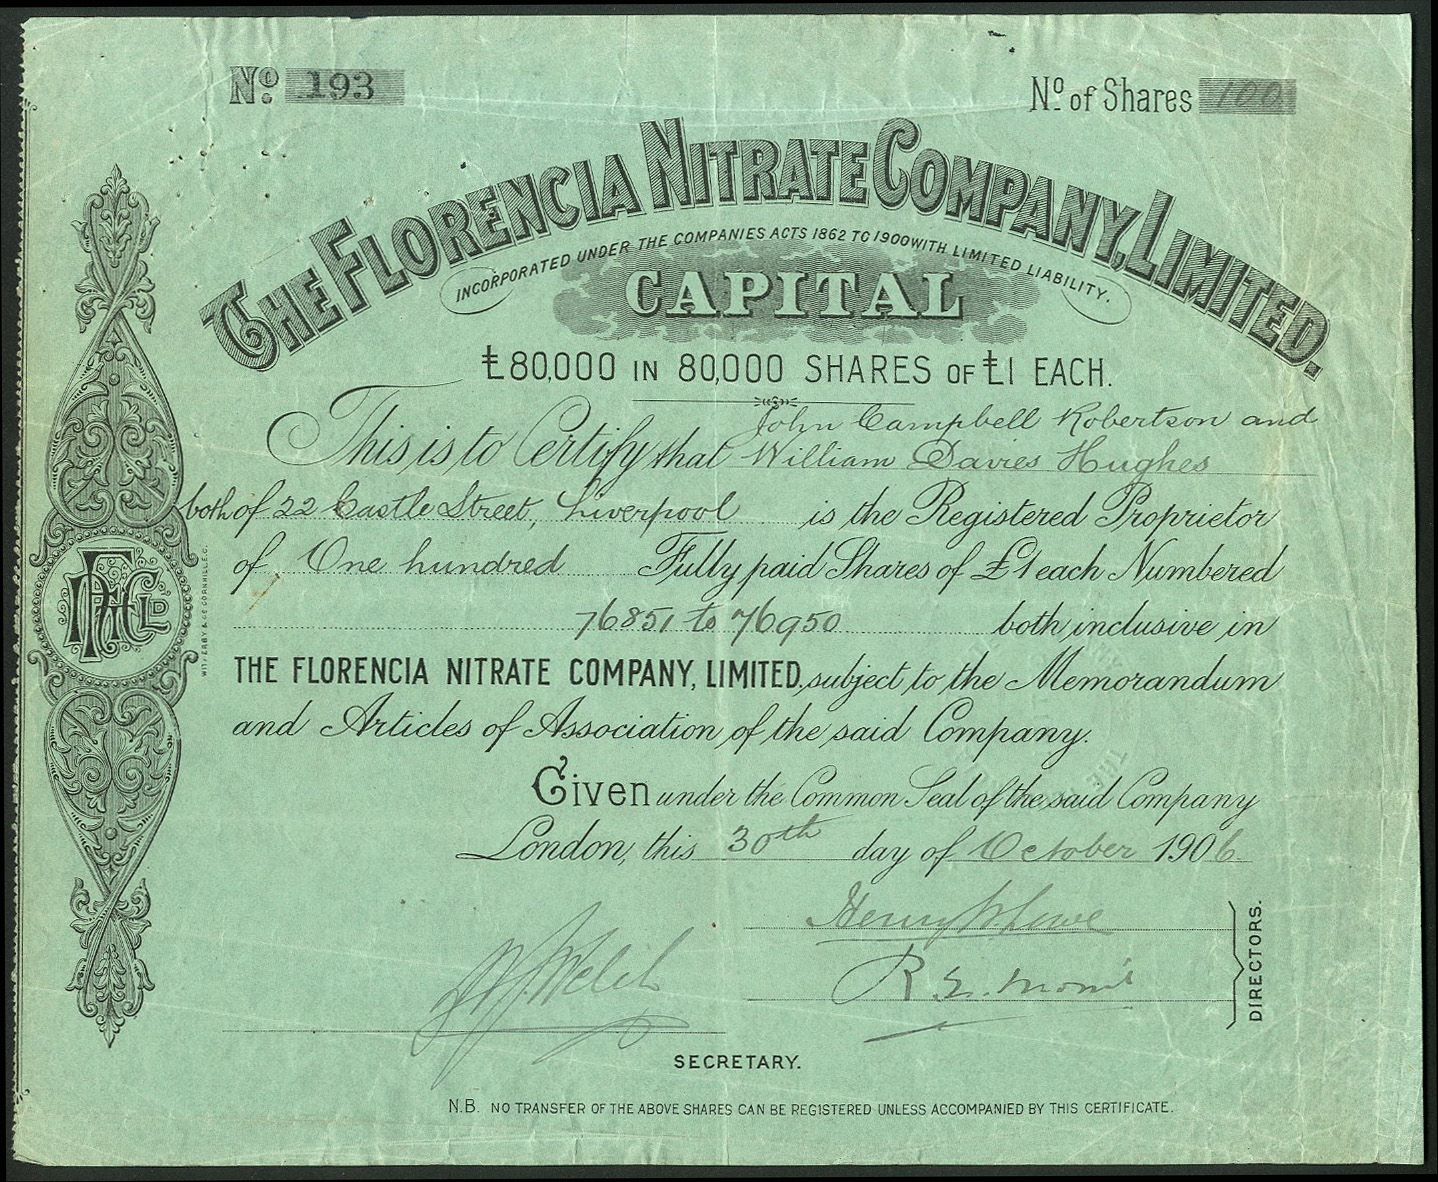 No. 193
No. of Shares 100
THE FLORENCIA NITRATE COMPANY, LIMITED.
INCORPORATED UNDER THE COMPANIES ACTS 1862 TO 1900 WITH LIMITED LIABILITY.
CAPITAL
£80,000 IN 80,000 SHARES OF £1 EACH.
John Campbell Robertson and
This is to Certify that William Davies Hughes
both of 22 Castle Street, Liverpool is the Registered Proprietor
of One hundred Fully paid Shares of £1 each Numbered
76851 to 76950 both inclusive in
THE FLORENCIA NITRATE COMPANY, LIMITED, subject to the Memorandum
and Articles of Association of the said Company.
Given under the Common Seal of the said Company
London, this 30th day of October 1906
Henry W. Lowe
R. E. Morris
DIRECTORS.
Welch
SECRETARY.
N.B. NO TRANSFER OF THE ABOVE SHARES CAN BE REGISTERED UNLESS ACCOMPANIED BY THIS CERTIFICATE.